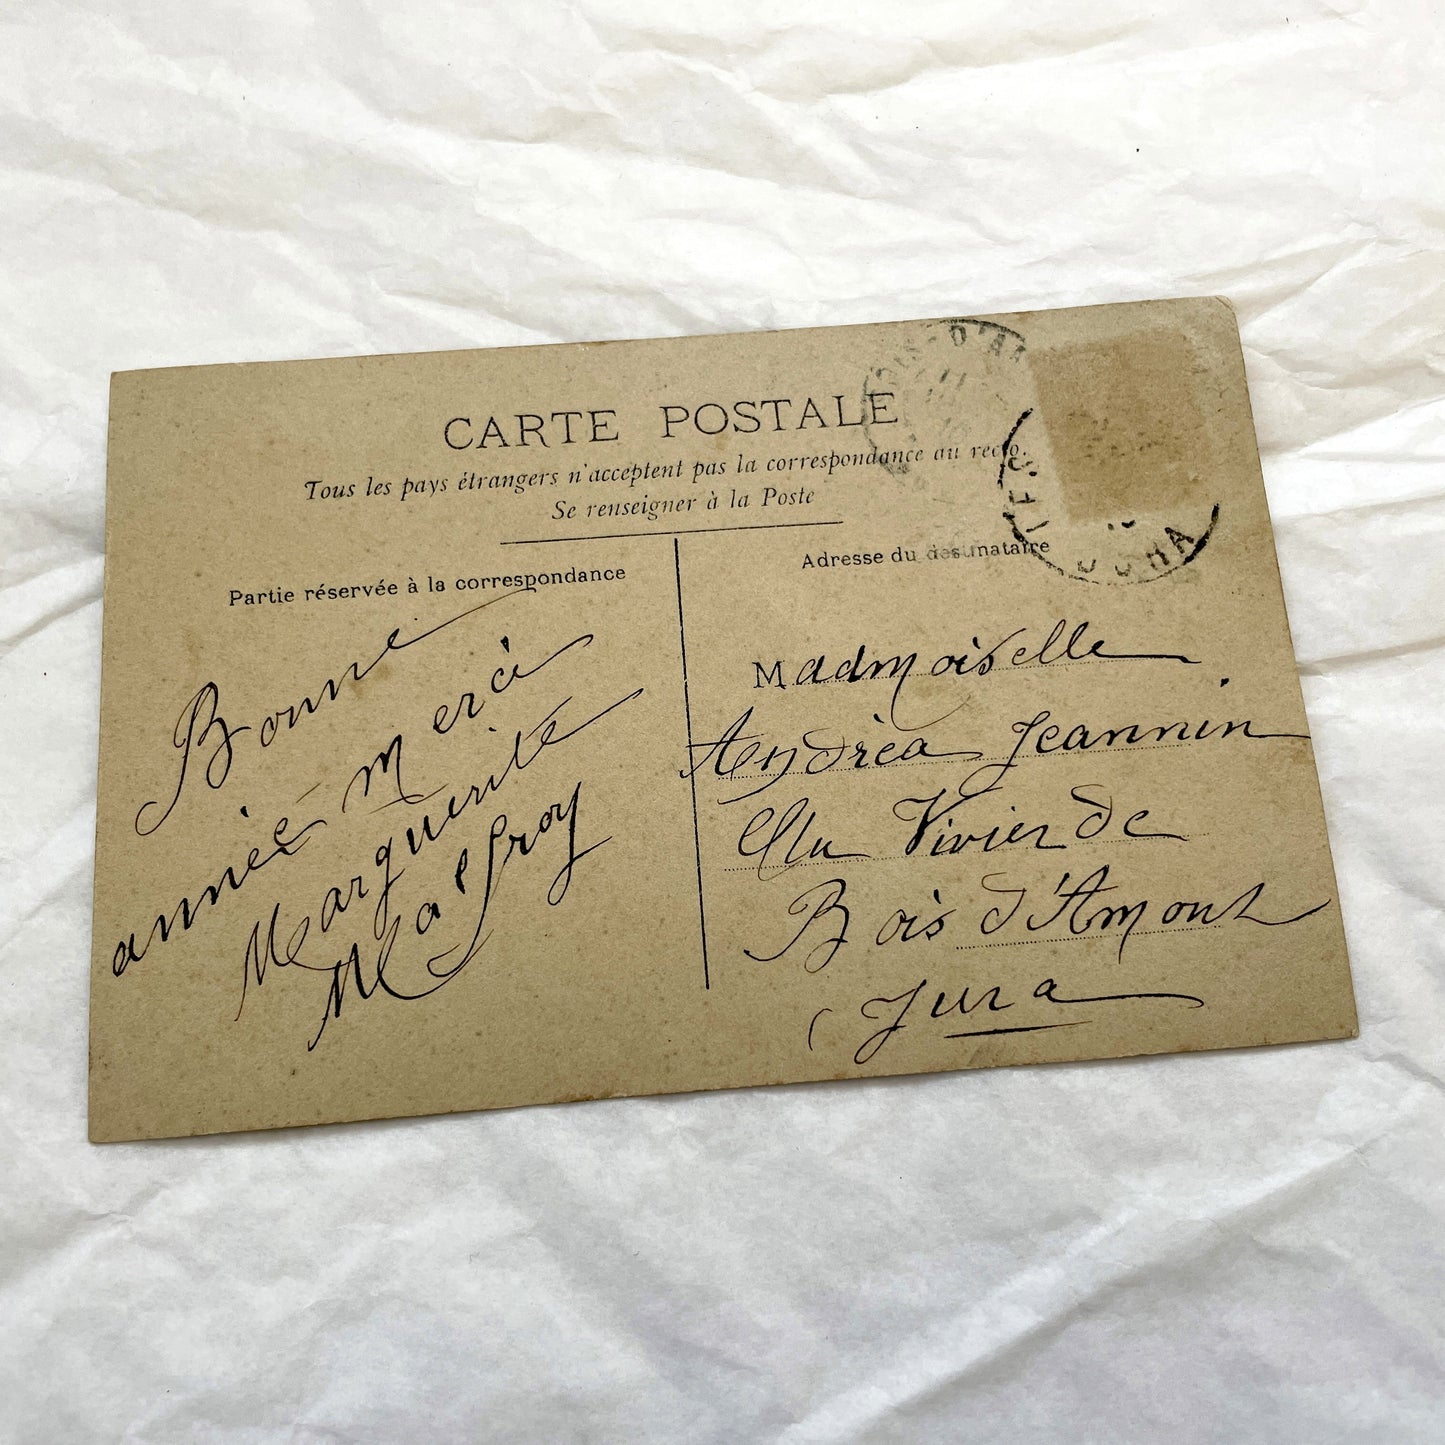 CARTE POSTALE
Tous les pays étrangers n'acceptent pas la correspondance au recto.
Se renseigner à la Poste
Partie réservée à la correspondance
Adresse du destinataire
Bonne
année merci
Marguerite
Malfroy
Madmoiselle
Andréa Jeannin
Au Vivier de
Bois d'Amont
(Jura
BOIS-D'A